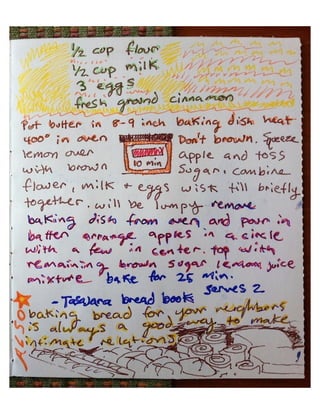 1/2 cup flour
1/2 cup milk
3 eggs
fresh ground cinnamon
Put butter in 8-9 inch baking dish heat
400° in oven Don't brown. Squeeze
lemon over apple and toss
10 min
with brown sugar. combine
flour, milk + eggs wisk till briefly
together. will be lumpy remove
baking dish from oven and pour in
batter arrange apples in a circle
with a few in center. top with
remaining brown sugar lemon juice
mixture bake for 25 min.
serves 2
- Tassajara bread book
ALSO
baking bread for your neighbors
is always a good way to make
intimate relations